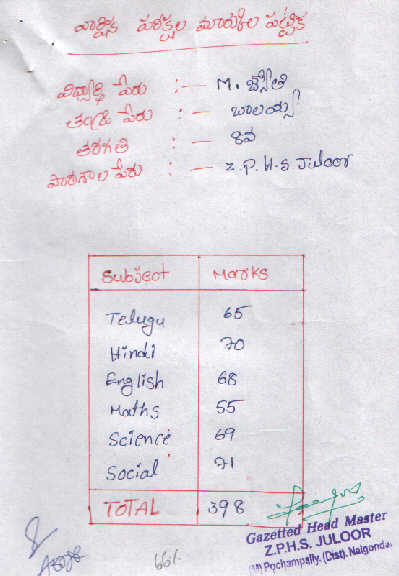 వార్షిక పరీక్షల మార్కుల పట్టిక
విద్యార్థి పేరు :— M. జ్యోతి
తండ్రి పేరు :— బాలయ్య
తరగతి :— 8వ
పాఠశాల పేరు :— Z.P.H.S Juloor
Subject Marks
Telugu 65
Hindi 70
English 68
Maths 55
Science 69
Social 71
TOTAL 398
66%
Gazetted Head Master
Z.P.H.S. JULOOR
(M) Pochampally, (Dist). Nalgonda.